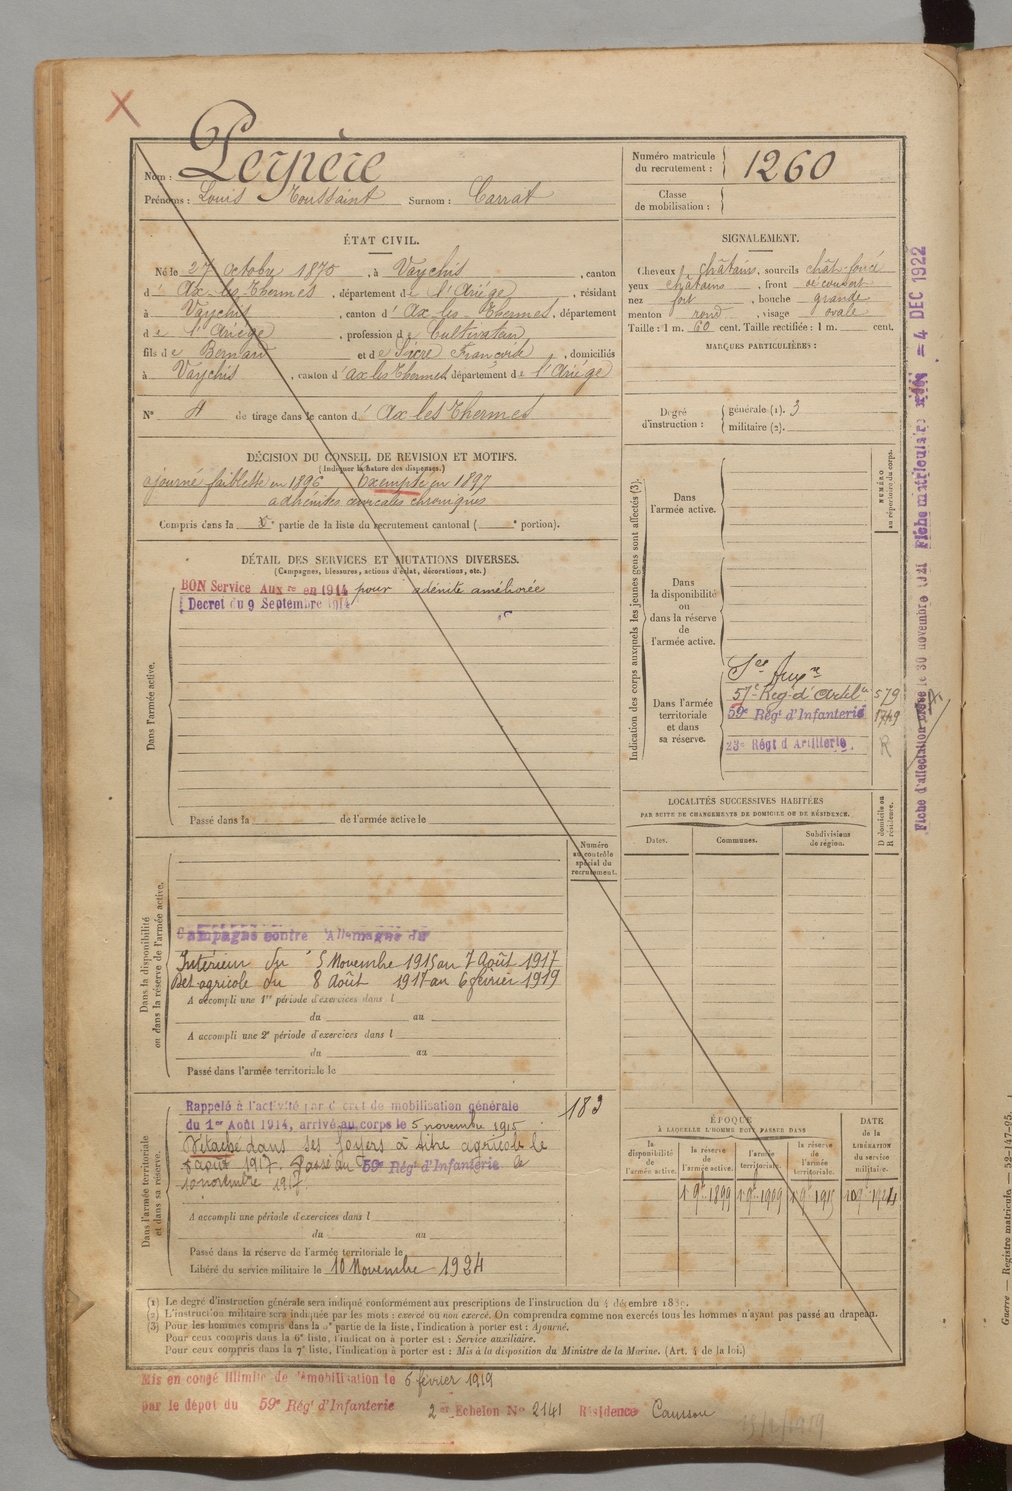 X
Nom : Perpère
Prénoms : Louis Toussaint Surnom : Carrat
Numéro matricule du recrutement : 1260
Classe de mobilisation :
ÉTAT CIVIL.
Né le 27 octobre 1875, à Vaychis, canton
d' Ax-les-Thermes, département de l'Ariége, résidant
à Vaychis, canton d' Ax-les-Thermes, département
de l'Ariége, profession de Cultivateur
fils de Bernard et de Sicre Françoise, domiciliés
à Vaychis, canton d'ax les Thermes, département de l'Ariége
N° 4 de tirage dans le canton d' Ax les Thermes
SIGNALEMENT.
Cheveux châtains, sourcils chât-foncé
yeux châtains, front découvert
nez fort, bouche grande
menton rond, visage ovale
Taille : 1 m. 60 cent. Taille rectifiée : 1 m. cent.
MARQUES PARTICULIÈRES :
Degré d'instruction : générale (1). 3
militaire (2).
DÉCISION DU CONSEIL DE REVISION ET MOTIFS.
(Indiquer la nature des dispenses.)
ajourné faiblesse en 1896 Exempté en 1897
adhénites cervicales chroniques
Compris dans la partie de la liste du recrutement cantonal ( portion).
DÉTAIL DES SERVICES ET MUTATIONS DIVERSES.
(Campagnes, blessures, actions d'éclat, décorations, etc.)
Dans l'armée active.
BON Service Aux re en 1914 pour adénite améliorée
Decret du 9 Septembre 1914
Passé dans la de l'armée active le
Indication des corps auxquels les jeunes gens sont affectés (3).
NUMÉRO au répertoire du corps.
Dans l'armée active.
Dans la disponibilité ou dans la réserve de l'armée active.
Dans l'armée territoriale et dans sa réserve.
Sce Auxre
57e Reg-d'Artil 579
59e Régt d'Infanterie 1749
23e Régt d'Artillerie. R
Fiche d'affectation le 30 novembre 1921 Fiche matriculaire = 4 DEC 1922
LOCALITÉS SUCCESSIVES HABITÉES
PAR SUITE DE CHANGEMENTS DE DOMICILE OU DE RÉSIDENCE.
Dates. Communes. Subdivisions de région.
D domicile ou R résidence.
Numéro au contrôle spécial du recrutement.
Dans la disponibilité ou dans la réserve de l'armée active.
Campagne contre l'Allemagne du
Intérieur du 5 Novembre 1915 au 7 Août 1917
Det agricole du 8 Août 1917 au 6 février 1919
A accompli une 1re période d'exercices dans l
du au
A accompli une 2e période d'exercices dans l
du au
Passé dans l'armée territoriale le
Dans l'armée territoriale et dans sa réserve.
Rappelé à l'activité par décret de mobilisation générale
du 1er Août 1914, arrivé au corps le 5 novembre 1915
183
Détaché dans ses foyers à titre agricole le
8 août 1917. Passé au 59e Régt d'Infanterie le
10 novembre 1917.
A accompli une période d'exercices dans l
du au
Passé dans la réserve de l'armée territoriale le
Libéré du service militaire le 10 Novembre 1924
ÉPOQUE
À LAQUELLE L'HOMME DOIT PASSER DANS
la disponibilité de l'armée active.
la réserve de l'armée active.
l'armée territoriale.
la réserve de l'armée territoriale.
DATE de la LIBÉRATION du service militaire.
1 9bre 1899 1 9bre 1909 1 9bre 1915 10 9bre 1924
(1) Le degré d'instruction générale sera indiqué conformément aux prescriptions de l'instruction du 4 décembre 1889.
(2) L'instruction militaire sera indiquée par les mots : exercé ou non exercé. On comprendra comme non exercés tous les hommes n'ayant pas passé au drapeau.
(3) Pour les hommes compris dans la 5e partie de la liste, l'indication à porter est : Ajourné.
Pour ceux compris dans la 6e liste, l'indication à porter est : Service auxiliaire.
Pour ceux compris dans la 7e liste, l'indication à porter est : Mis à la disposition du Ministre de la Marine. (Art. 4 de la loi.)
Mis en congé illimité de démobilisation le 6 février 1919
par le dépot du 59e Régt d'Infanterie 2 er Echelon N° 2141 Résidence Caussou
Guerre — Registre matricule — 52-147-95.